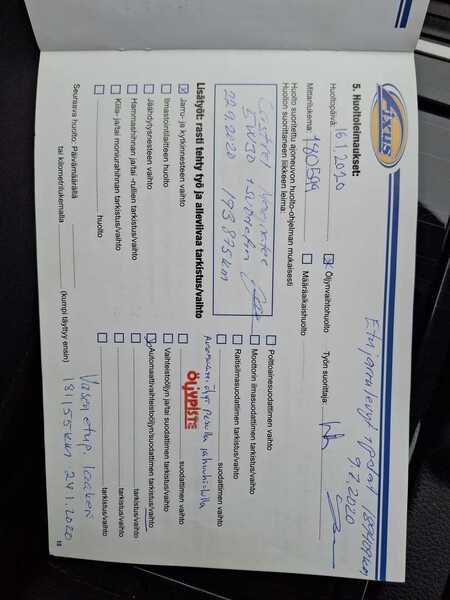 Fixus
Etujarrulevyt + palat 188409km
9.7.2020
5. Huoltoleimaukset:
Huoltopäivä: 16.1.2020
Öljynvaihtohuolto
Työn suorittaja:
Mittarilukema: 180599
Määräaikaishuolto
Huolto suoritettu ajoneuvon huolto-ohjelman mukaisesti
Huollon suorittaneen liikkeen leima:
5W30 + suodatin
22.9.2020 193 875 km
Polttoainesuodattimen vaihto
Moottorin ilmasuodattimen tarkistus/vaihto
Raitisilmasuodattimen tarkistus/vaihto
suodattimen vaihto
Lisätyöt: rasti tehty työ ja alleviivaa tarkistus/vaihto
ÖLJYPISTE
Jarru- ja kytkinnesteen vaihto
suodattimen vaihto
Ilmastointilaitteen huolto
Vaihteistoöljyn ja/tai suodattimen tarkistus/vaihto
Jäähdytysnesteen vaihto
Automaattivaihteistoöljyn/suodattimen tarkistus/vaihto
Hammashihnan ja/tai -rullien tarkistus/vaihto
tarkistus/vaihto
Kiila- ja/tai moniurahihnan tarkistus/vaihto
tarkistus/vaihto
huolto
tarkistus/vaihto
Seuraava huolto: Päivämäärällä
tai kilometrilukemalla
(kumpi täyttyy ensin)
Vasen etup. laakeri
181155km 24.1.2020